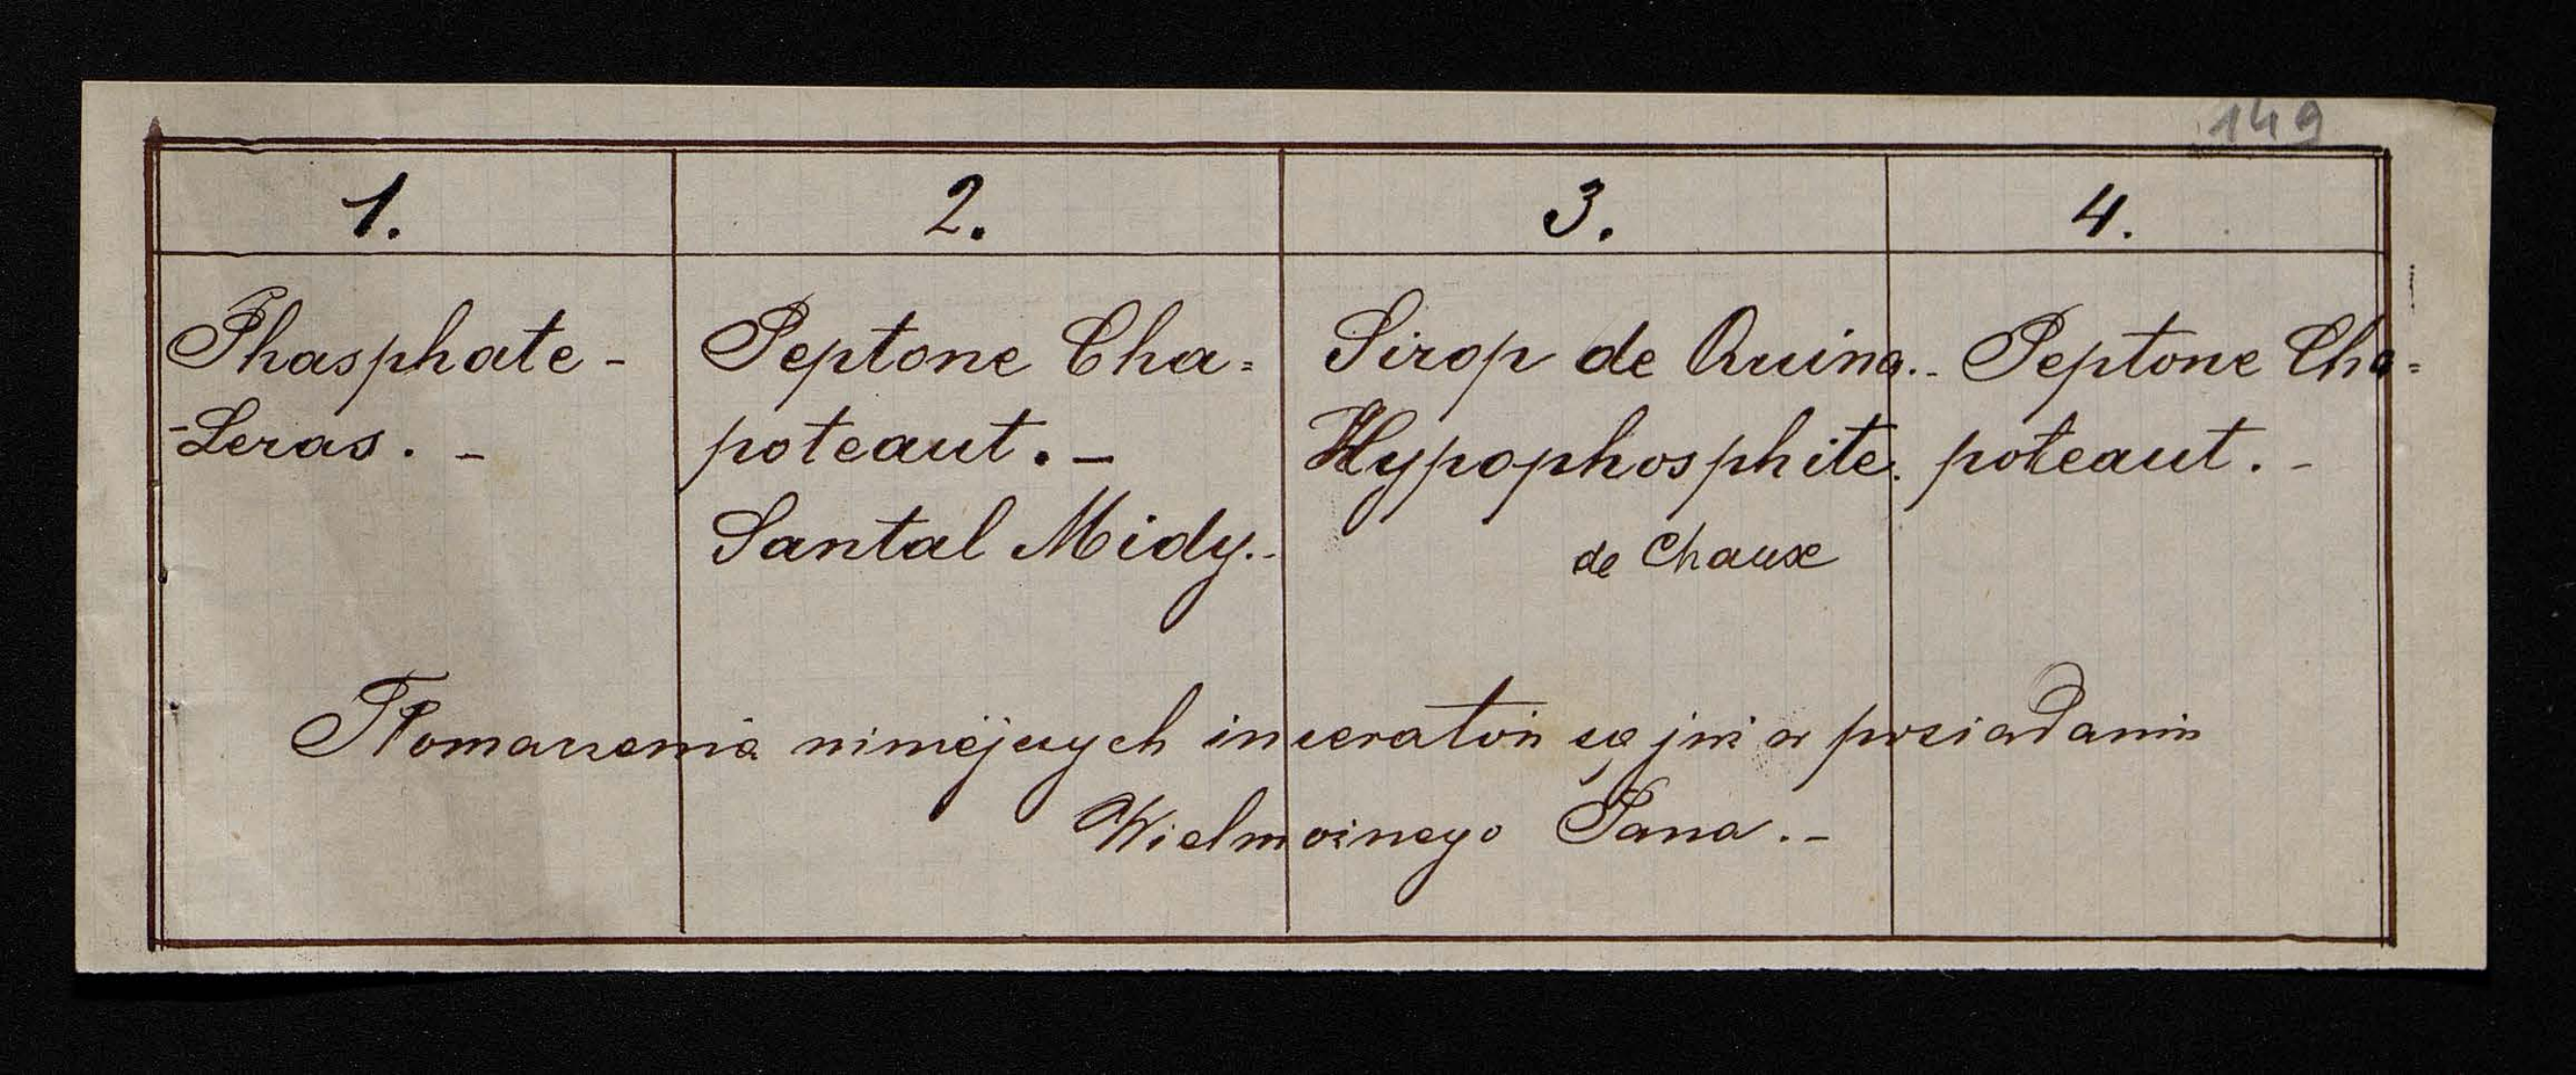 149
1. 2. 3. 4.
Phasphate-
-Leras. -
Peptone Cha=
poteaut. -
Santal Midy.-
Sirop de Quina.-
Hypophosphite.
de Chaux
Peptone Cha=
poteaut. -
Tłomaczenia niniejszych inseratów są już w posiadaniu
Wielmożnego Pana. -